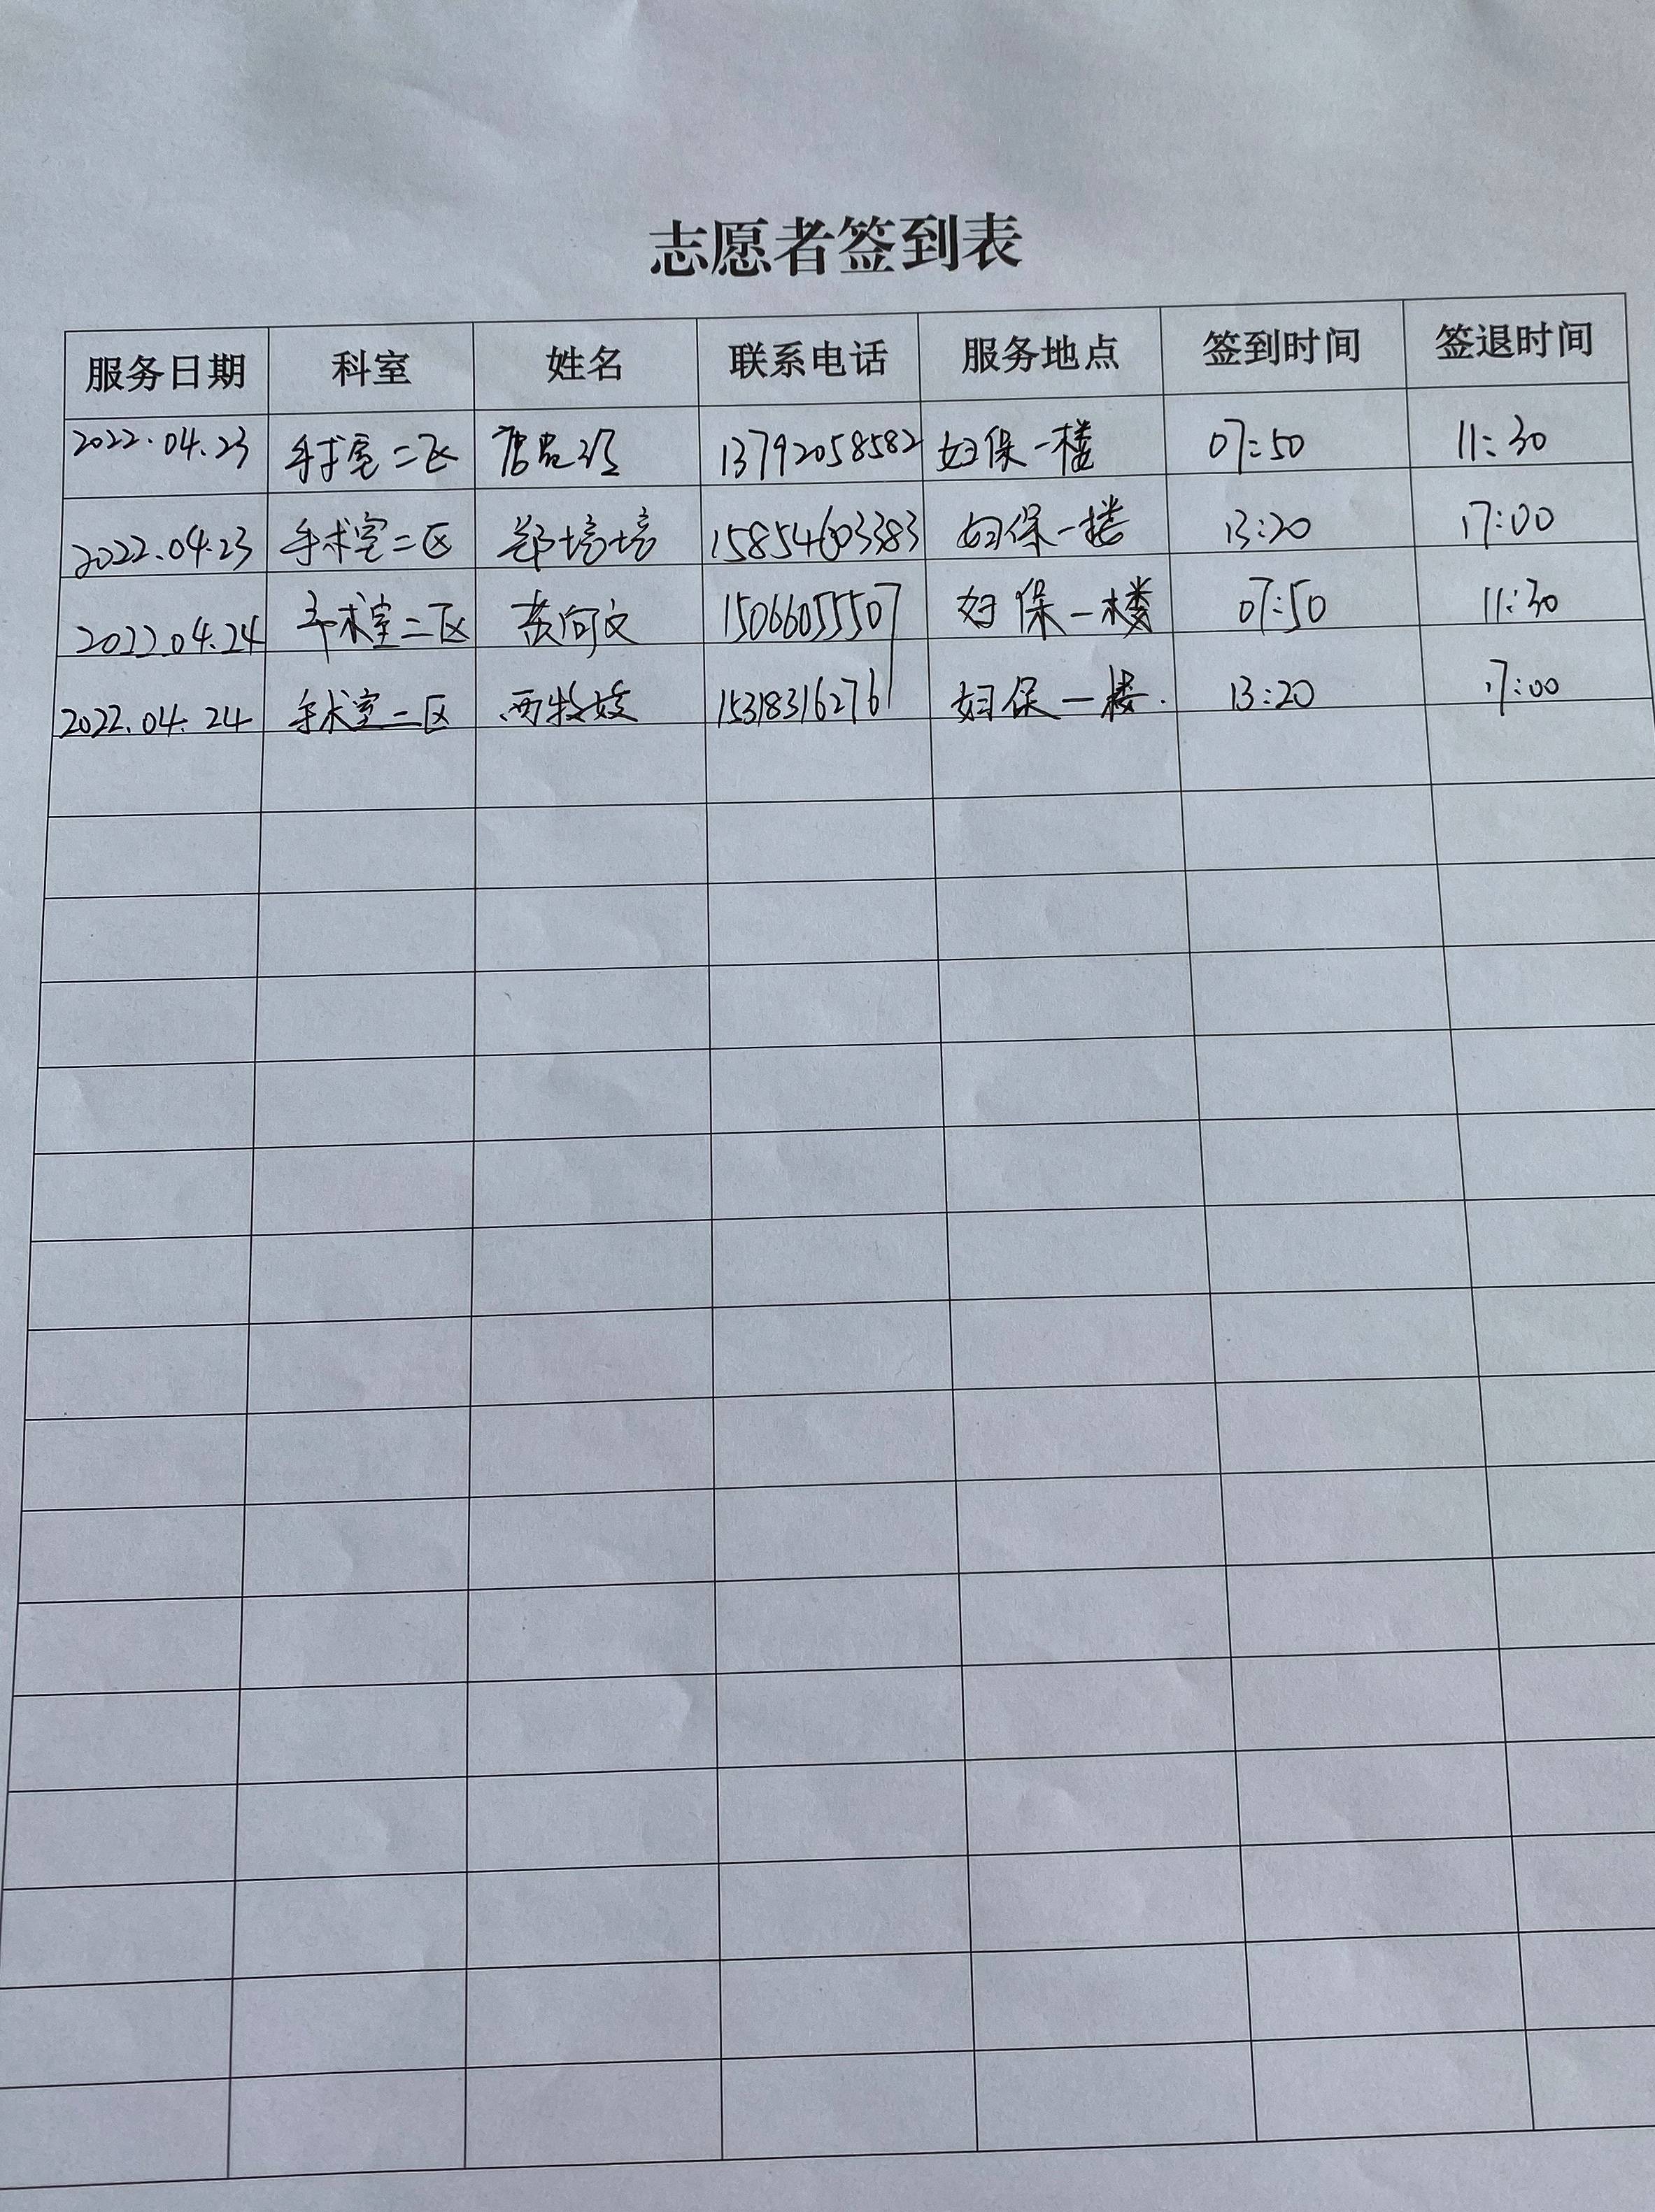 志愿者签到表
服务日期 科室 姓名 联系电话 服务地点 签到时间 签退时间
2022.04.23 手术室二区 13792058582 妇保一楼 07:50 11:30
2022.04.23 手术室二区 郑培培 15854603383 妇保一楼 13:20 17:00
2022.04.24 手术室二区 黄向文 15066055507 妇保一楼 07:50 11:30
2022.04.24 手术室二区 15318316276 妇保一楼. 13:20 17:00